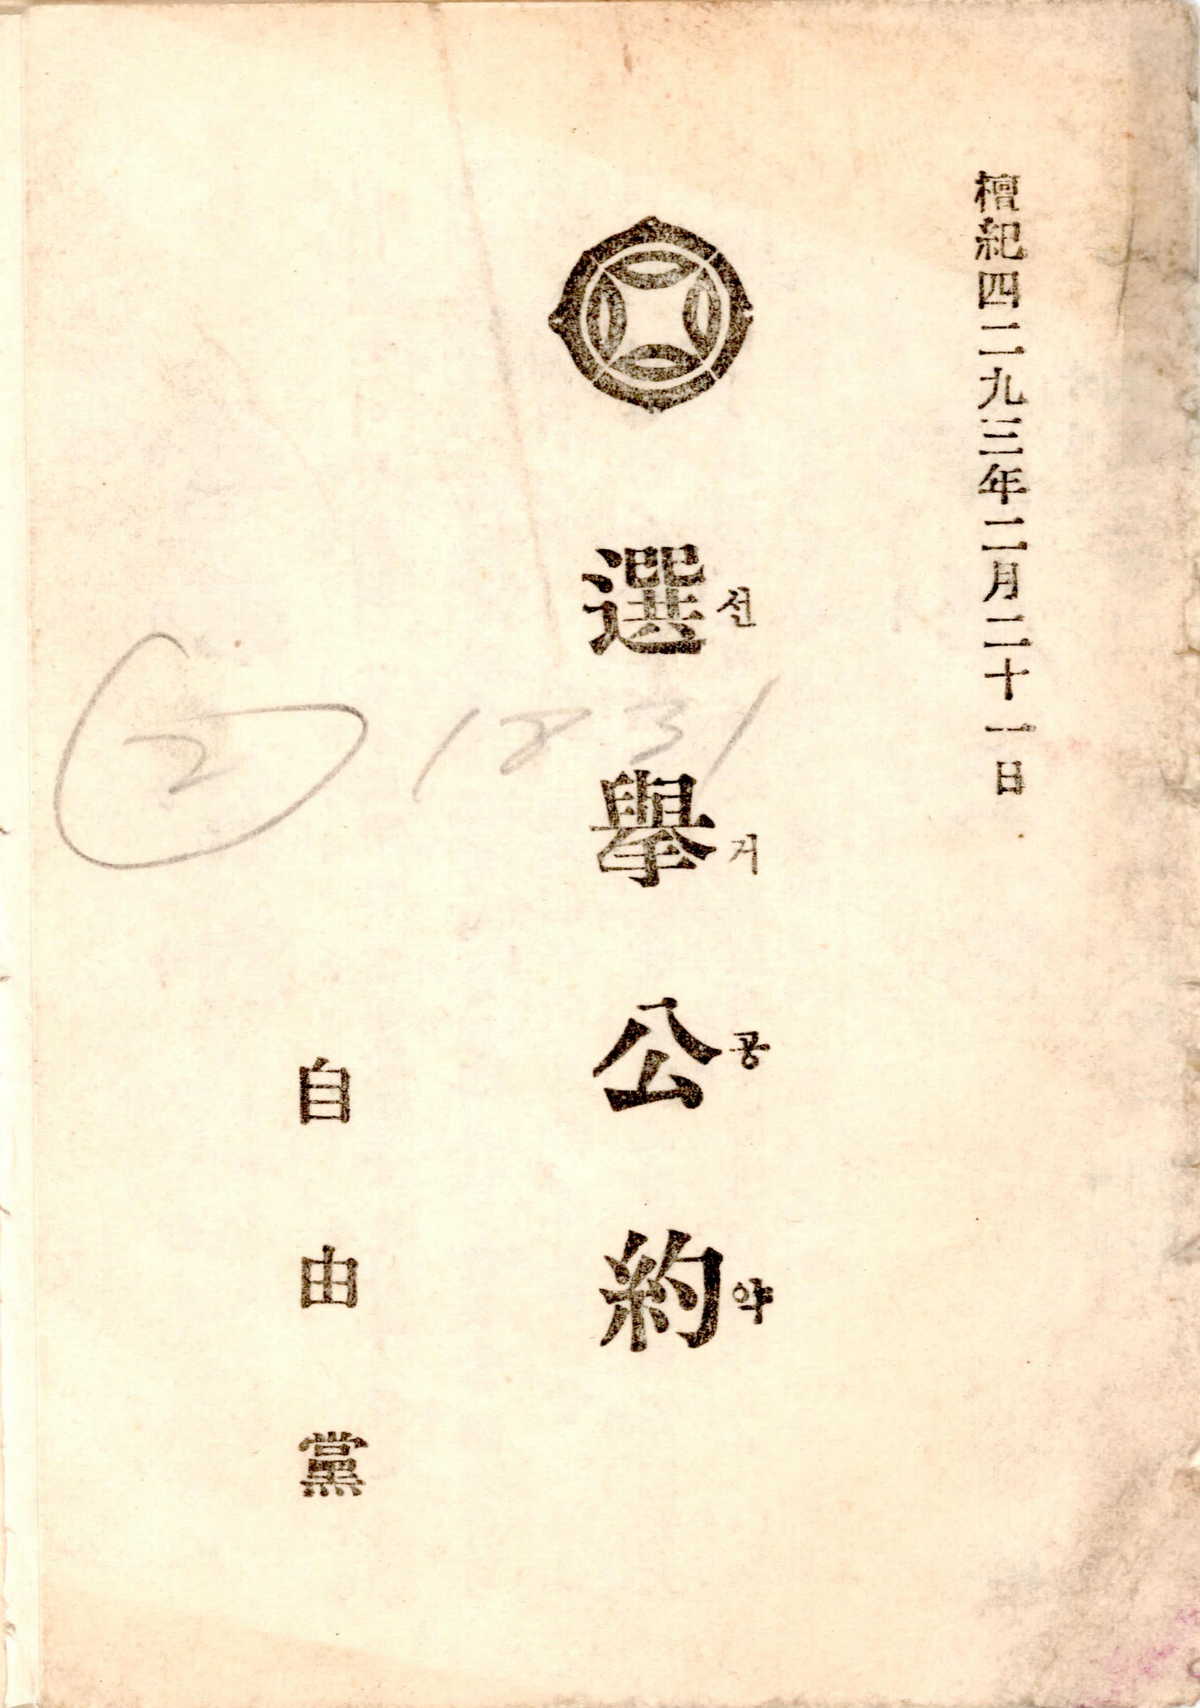 檀紀四二九三年二月二十一日
選擧公約
선거공약
自由黨
② 1831